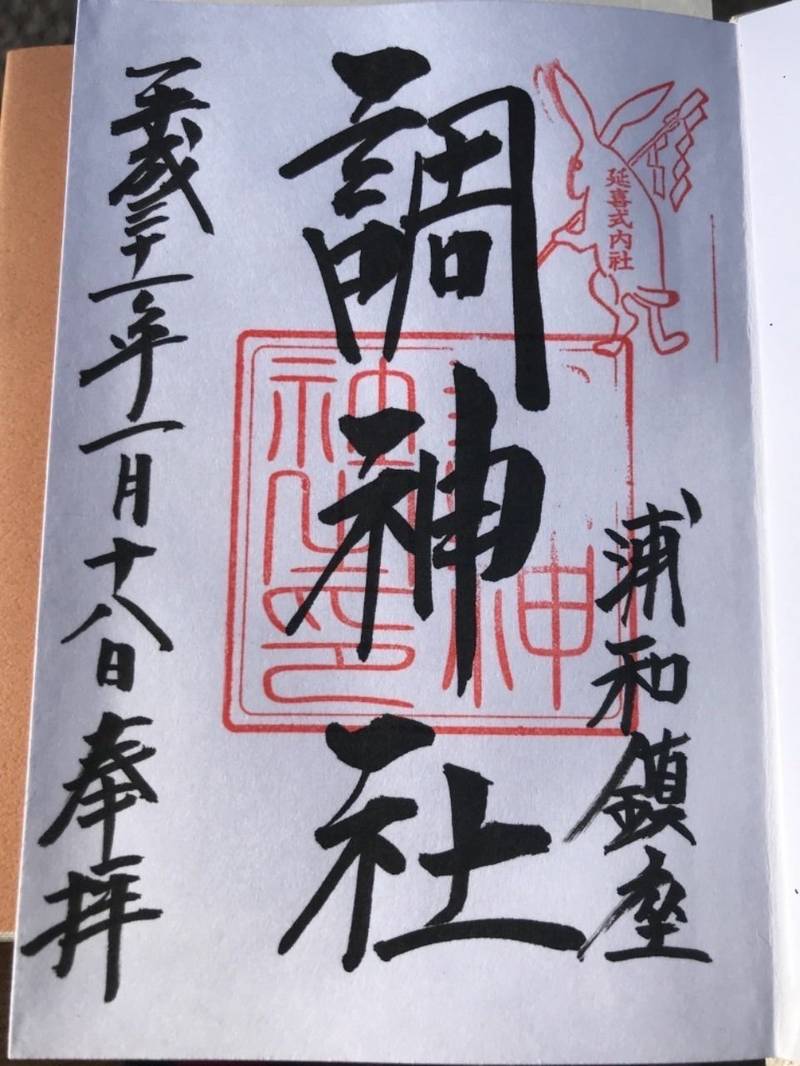 延喜式内社
浦和鎮座
調神社
神
社之印
平成三十一年一月十八日奉拝